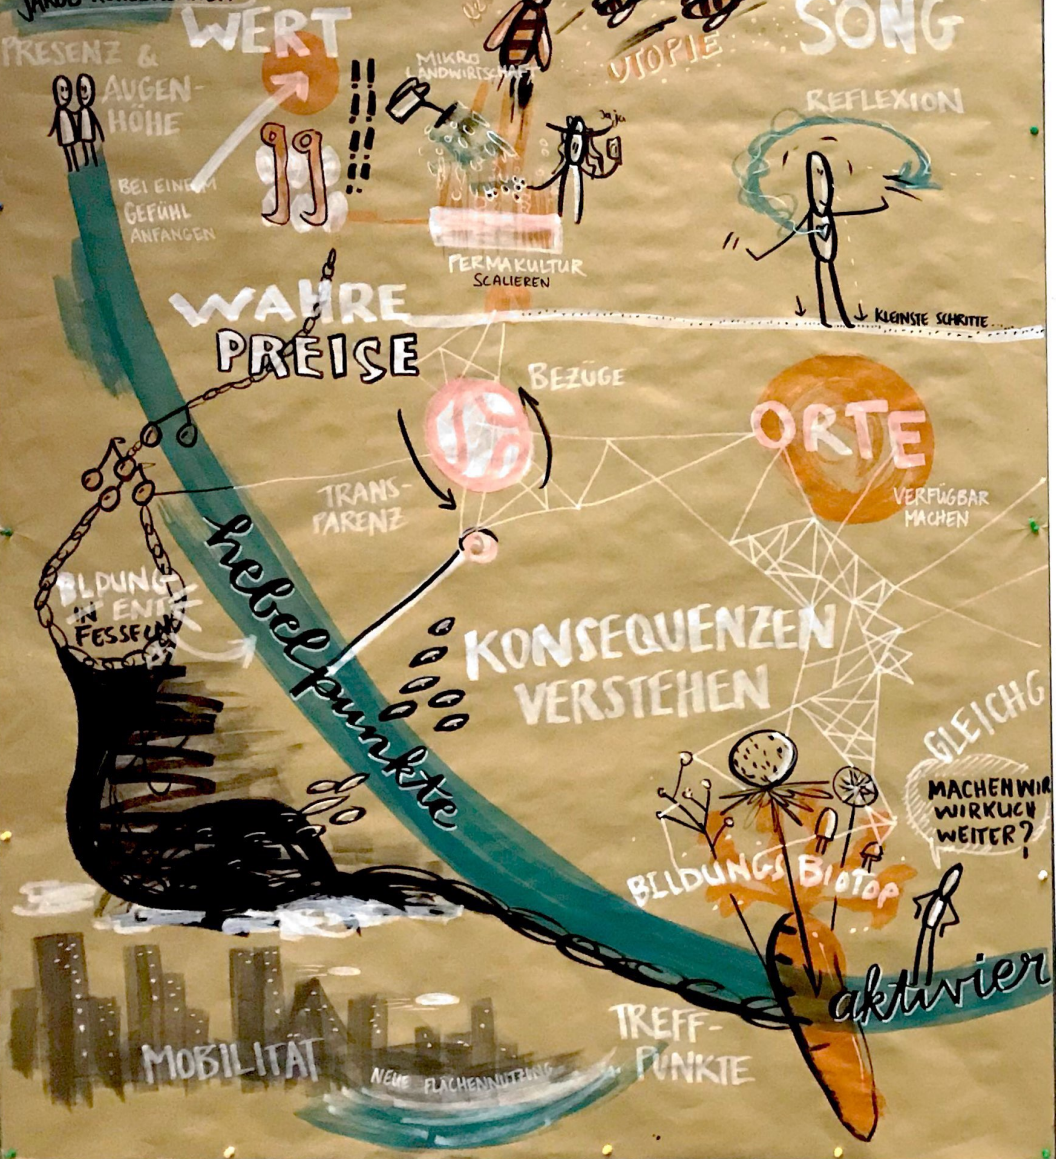 WERT
SONG
PRESENZ &
AUGEN-
HÖHE
BEI EINEM
GEFÜHL
ANFANGEN
MIKRO
LANDWIRTSCHAFT
UTOPIE
REFLEXION
PERMAKULTUR
SCALIEREN
KLEINSTE SCHRITTE...
WAHRE
PREISE
BEZÜGE
ORTE
VERFÜGBAR
MACHEN
TRANS-
PARENZ
hebelpunkte
IN
FESSELN
KONSEQUENZEN
VERSTEHEN
GLEICHG
MACHEN WIR
WIRKLICH
WEITER?
BILDUNGS BIOTOP
aktivier
TREFF-
PUNKTE
MOBILITÄT
NEUE FLÄCHENNUTZUNG